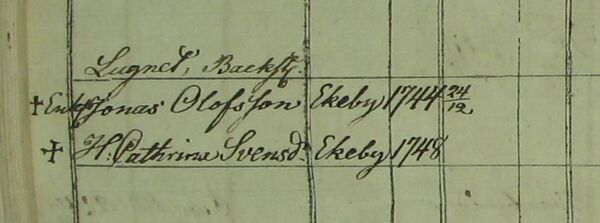 Lugnet, Backst.
† Enkl. Jonas Olofsson Ekeby 1744 24/12
† H. Cathrina Svensd. Ekeby 1748